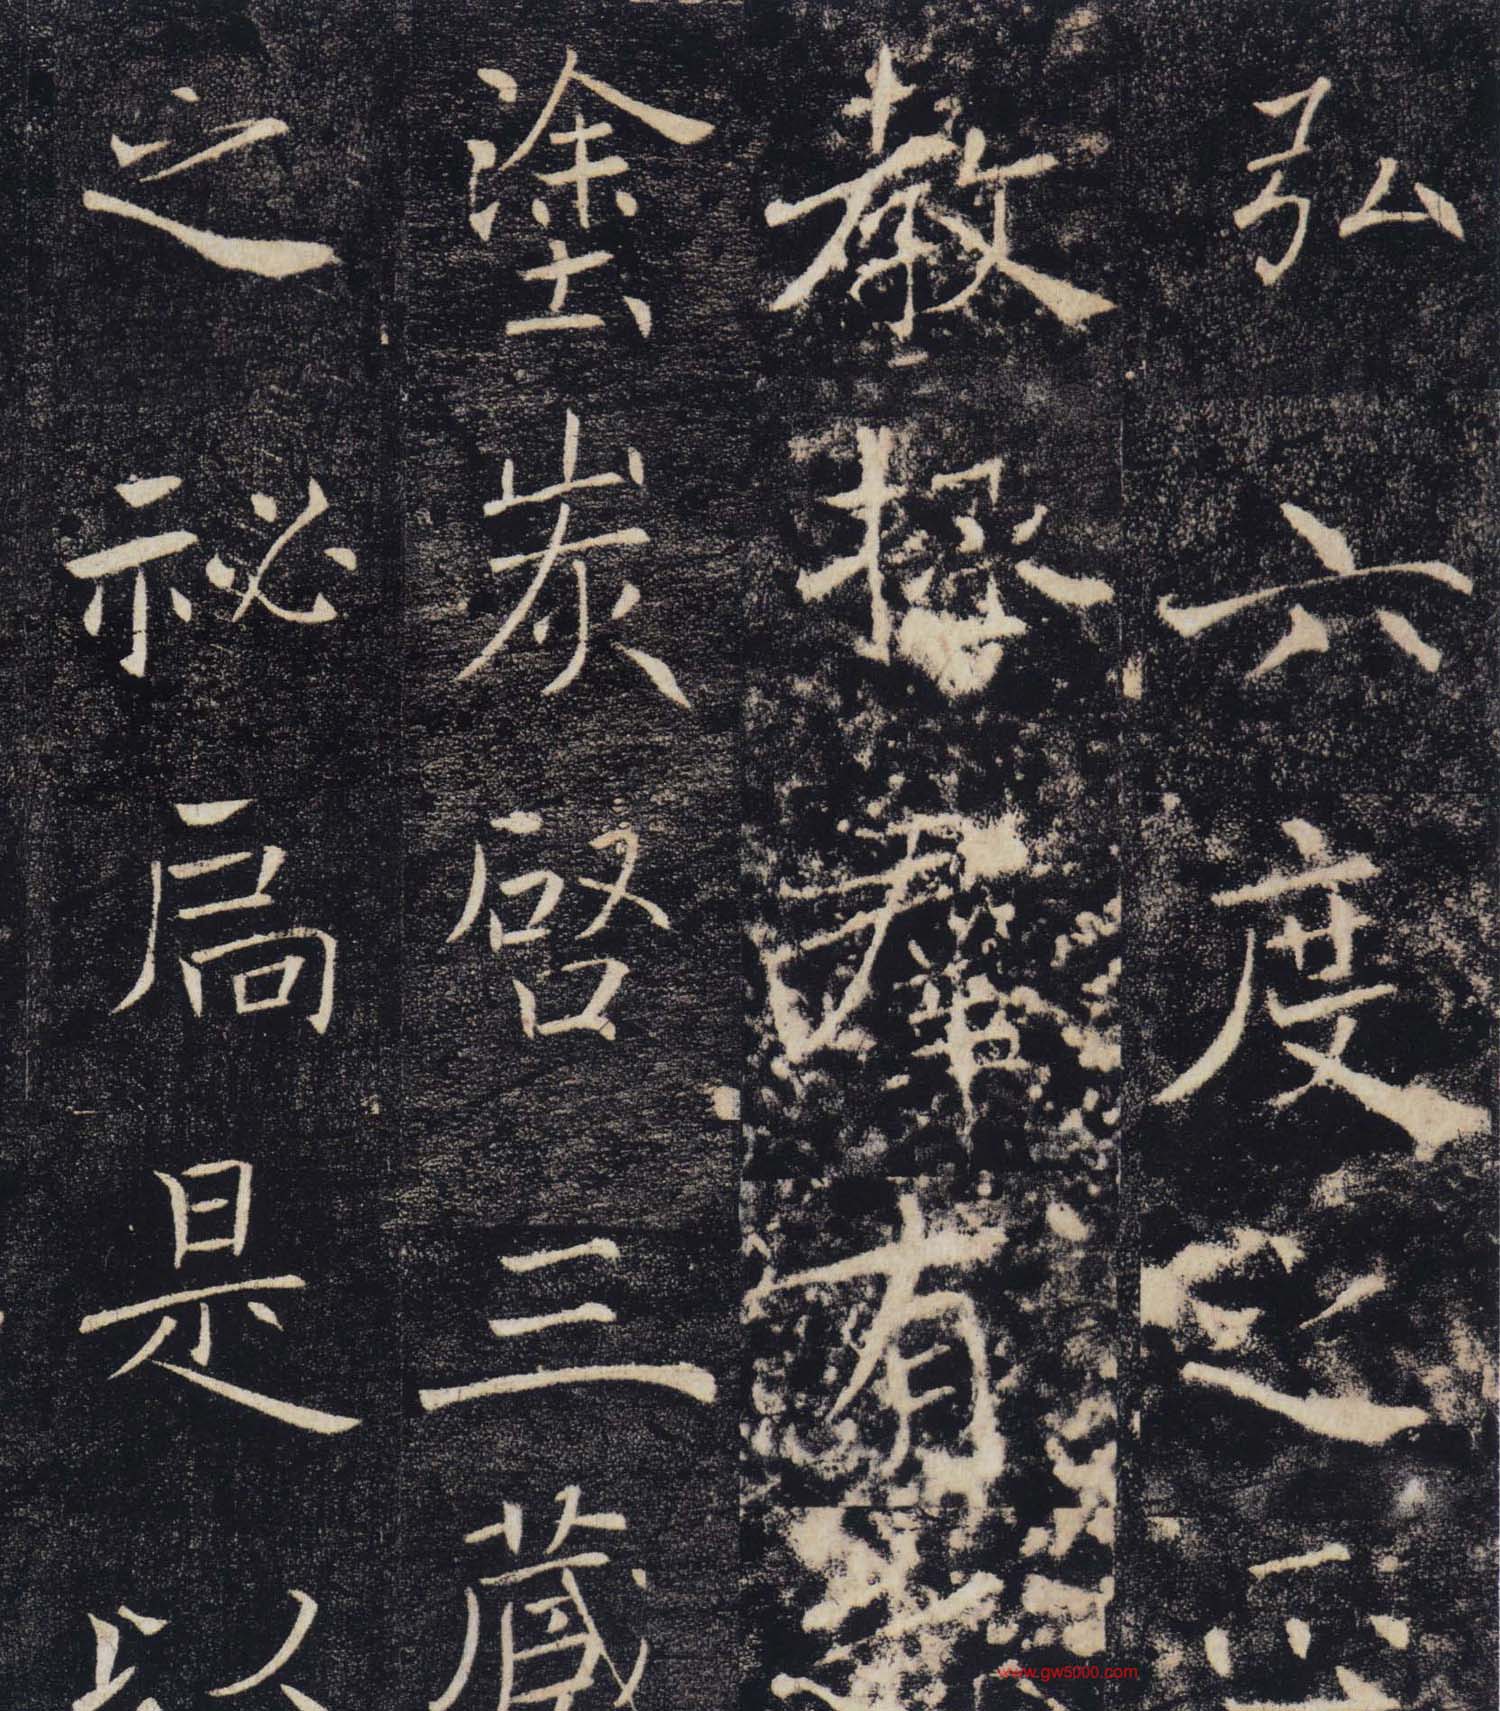 弘六度之正
教拯羣有之
塗炭啓三藏
之祕扃是以
www.gw5000.com